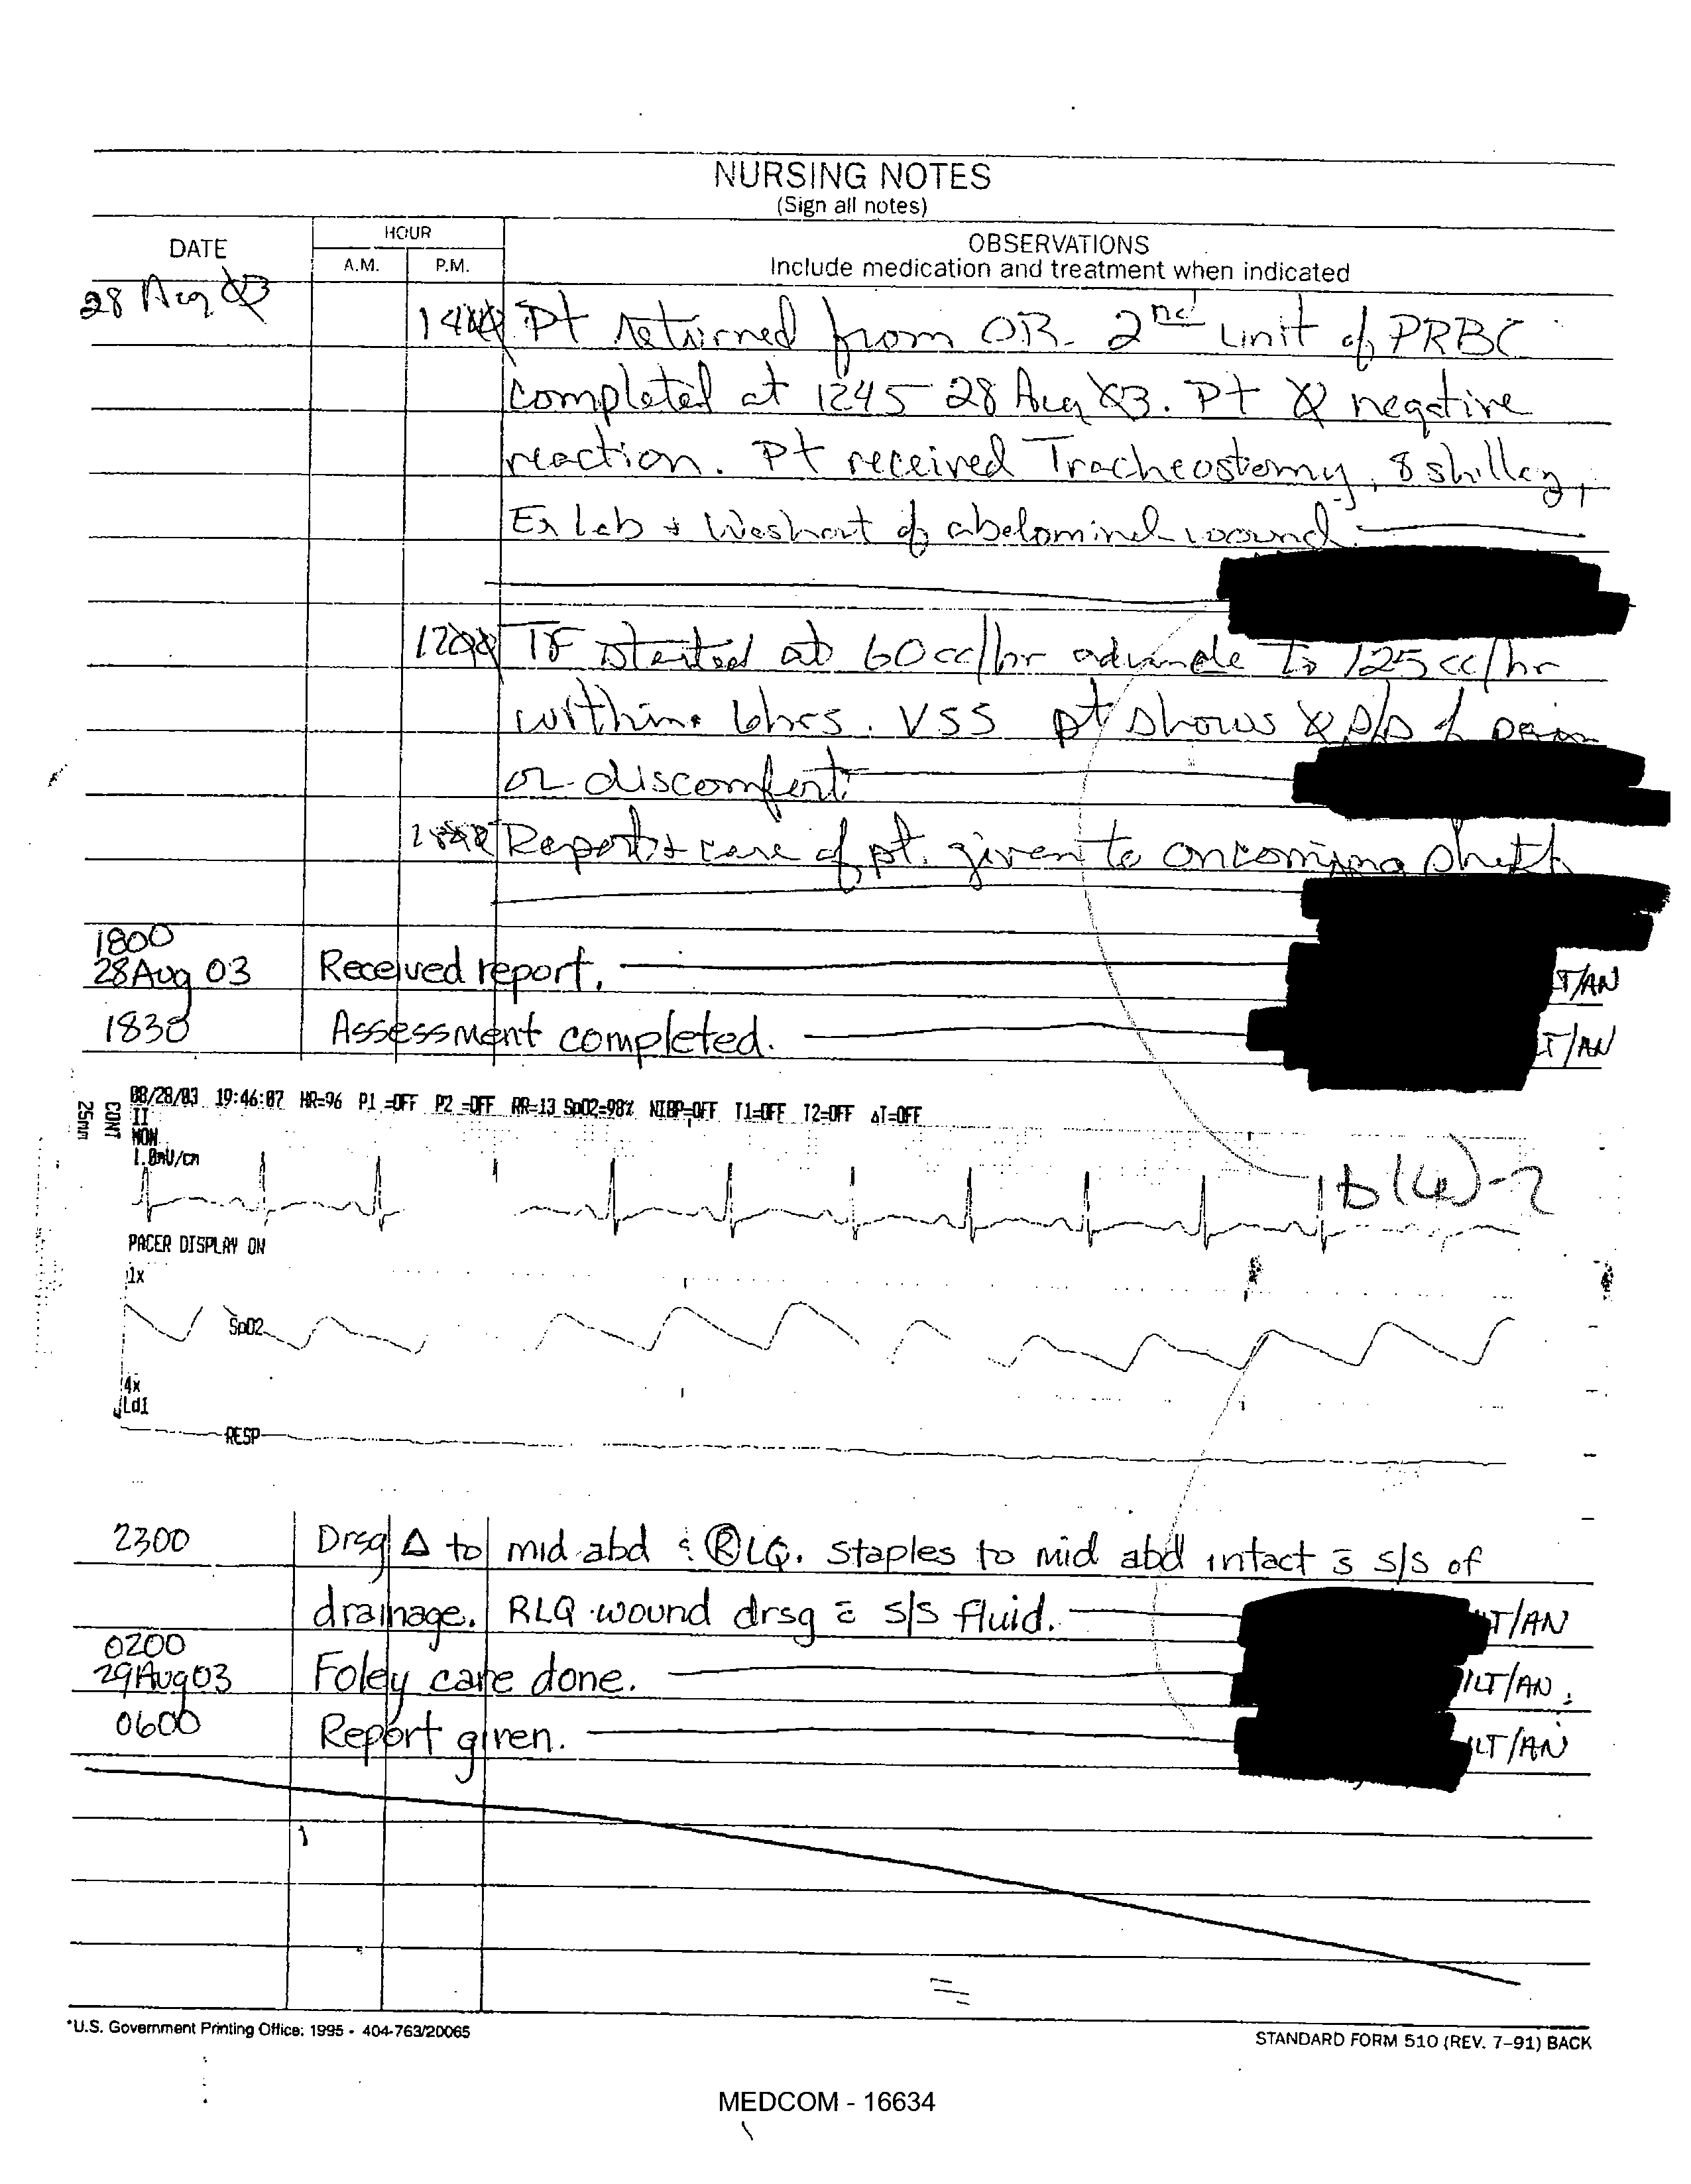 NURSING NOTES
(Sign all notes)
DATE
HOUR
A.M.
P.M.
OBSERVATIONS
Include medication and treatment when indicated
28 Aug 03
Pt returned from OR. 2nd unit of PRBC
completed at 1245 28 Aug 03. Pt Ø negative
reaction. Pt received Tracheostomy, 8 shilley,
Ex lab + Washout of abdominal wound.
TF started at 60cc/hr advance to 125cc/hr
within 6hrs. VSS pt shows Ø s/s of pain
or discomfort.
Report + care of pt. given to oncoming shift
1800
28 Aug 03 Received report. LT/AN
1830 Assessment completed. LT/AN
25mm
CONT
08/28/03 19:46:07 HR=96 P1=OFF P2=OFF RR=13 SpO2=98% NIBP=OFF T1=OFF T2=OFF ΔT=OFF
II
MON
1.0mV/cm
b(6)-2
PACER DISPLAY ON
1x
SpO2
4x
Ld1
RESP
2300 Drsg Δ to mid abd & Ⓡ LQ. staples to mid abd intact s̄ s/s of
drainage. RLQ wound drsg c̄ s/s fluid. LT/AN
0200
29Aug03 Foley care done. 1LT/AN
0600 Report given. 1LT/AN
*U.S. Government Printing Office: 1995 - 404-763/20065
STANDARD FORM 510 (REV. 7-91) BACK
MEDCOM - 16634